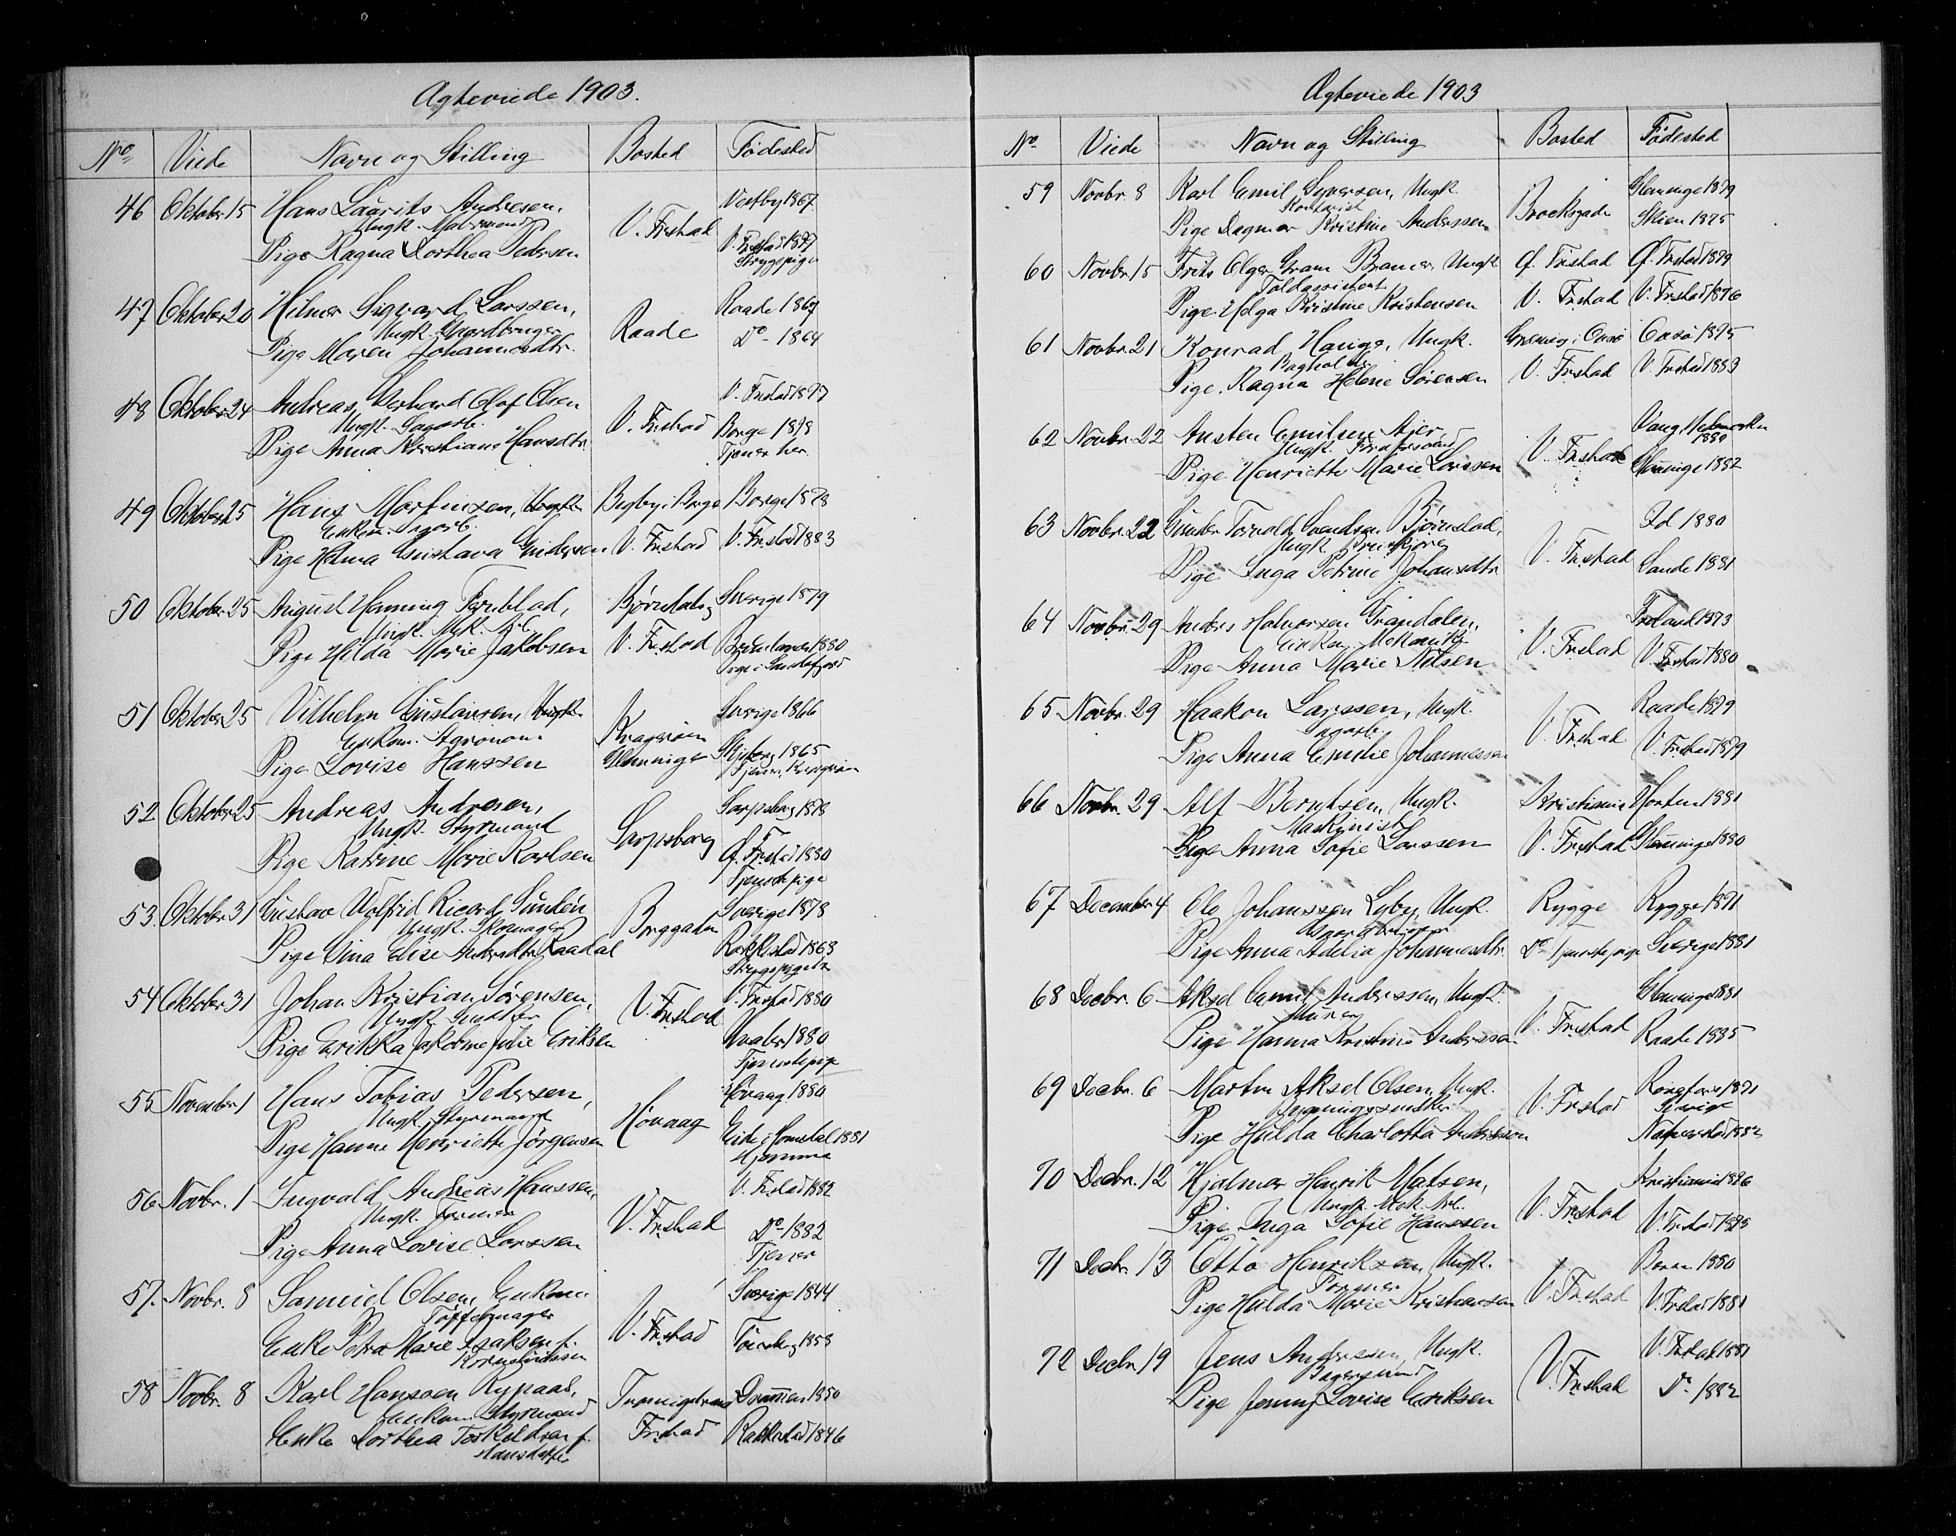 Ægteviede 1903.
No Viede Navn og Stilling Bosted Fødested
46 Oktober 15 Hans Laurits Andresen, V. Frstad Vestby 1867
Ungk.
Pige Ragna Dorthea Pedersen V. Frstad 1877
Strygepige
47 Oktober 20 Hilmer Sigvard Larssen, Raade Raade 1867
Ungk. Gaardbruger
Pige Maren Johannesdtr. Do - 1864
48 Oktober 24 Andreas Olaf Olsen V. Frstad V. Frstad 1877
Ungk. Sagarb.
Pige Anna Kristiane Hansdtr. Borge 1878
Tjener her.
49 Oktober 25 Hans Martinsen, Begby i Borge Borge 1878
Enkem. Sagarb.
Pige Hanna Gustava V. Frstad V. Frstad 1883
50 Oktober 25 August Sverige 1879
Ungk. Mek. Arb.
Pige Hilda Marie Jakobsen V. Frstad 1880
51 Oktober 25 Vilhelm Gustavsen, Kragerøen Sverige 1866
Enkem. Agronom
Pige Lovise Hanssen Glemminge 1865
52 Oktober 25 Andreas Andresen, Sarpsborg Sarpsborg 1878
Ungk. Styrmand
Pige Katrine Marie Karlsen Ø. Frstad 1880
Tjenestepige
53 Oktober 31 Gustav Volfrid Ricard Sundén Brogaden Sverige 1878
Ungk. Skomager
Pige Gina Elise Raadal Rakkestad 1868
54 Oktober 31 Johan Kristian Sørensen, V. Frstad V. Frstad 1880
Ungk.
Pige Erikka Jakobine Julie Eriksen Hvaler 1880
Tjenestepige
55 November 1 Hans Tobias Pedersen, Høvaag Høvaag 1880
Ungk. Styrmand
Pige Hanne Henriette Jørgensen Eide i 1881
Hjemme
56 Novbr. 1 Ingvald Andreas Hanssen, V. Frstad V. Frstad 1882
Ungk. Former
Pige Anna Lovise Larssen Do - 1882
Tjener
57. Novbr. 8 Samuel Olsen, Enkem. V. Frstad Sverige 1844
Tøffelmager
Enke Petra Marie Isaksen f. Tønsberg 1858
58 Novbr. 8 Karl Hanssen Rypaas, Drammen 1850
Enkem. Styrmand
Enke Dorthea Torkildsen f. Frstad Rakkestad 1846
Hansdatter
Ægteviede 1903
No. Viede Navn og Stilling Bosted Fødested
59 Novbr. 8 Karl Emil Syversen, Ungk. Brocksgade Glemminge 1879
Kontorist
Pige Dagmar Kristine Anderssen Skien 1875
60 Novbr. 15 Frits Olger Gram Ungk. Ø. Frstad Ø. Frstad 1879
Toldassistent
Pige Helga Kristine Kristensen V. Frstad V. Frstad 1876
61 Novbr. 21 Konrad Hauge, Ungk. Onsø Onsø 1875
Bogholder
Pige Ragna Helene Sørensen V. Frstad V. Frstad 1883
62 Novbr. 22 Austen Emilsen V. Frstad Vang Hedemarken
Ungk. 1880
Pige Henriette Marie Larssen Glemminge 1882
63 Novbr. 22 Gunder Torvald Svendsen Bjørnstad, V. Frstad Id 1880
Ungk.
Pige Inga Petrine Johansdtr. Sande 1881
64 Novbr. 29 Andres Halvorsen Grandalen, V. Frstad Froland 1873
Enkem. Mekaniker
Pige Anna Marie Nilsen V. Frstad 1880
65 Novbr. 29 Haakon Larssen, Ungk. V. Frstad Raade 1879
Sagarb.
Pige Anna Emilie Johannessen V. Frstad 1879
66 Novbr. 29 Alf Berntsen, Ungk. Kristiania Horten 1881
Maskinist
Pige Anna Sofie Larssen V. Frstad Glemminge 1880
67 December 4 Ole Johanssen Lyby, Ungk. Rygge Rygge 1871
Pige Anna Adelia Johannesdtr. Do - Tjenestepige Sverige 1881
68 Decbr. 6 Aksel Emil Anderssen, Ungk. V. Frstad Glemminge 1881
Murer
Pige Hanna Kristine Anderssen Raade 1885
69 Decbr. 6 Martin Aksel Olsen, Ungk. V. Frstad 1871
Sverige
Pige Hulda Charlotta Andersson 1882
70 Decbr. 12 Hjalmar Henrik Matsen, V. Frstad Kristiania 1876
Ungk. Mek. Arb.
Pige Inga Sofie Hanssen V. Frstad 1875
71 Decbr. 13 Otto Henriksen, Ungk. V. Frstad 1880
Former
Pige Hulda Marie Kristiansen V. Frstad 1881
72 Decbr. 19 Jens Andresen, Ungk. V. Frstad V. Frstad 1881
Bagersvend
Pige Jenny Lovise Eriksen Do - 1882